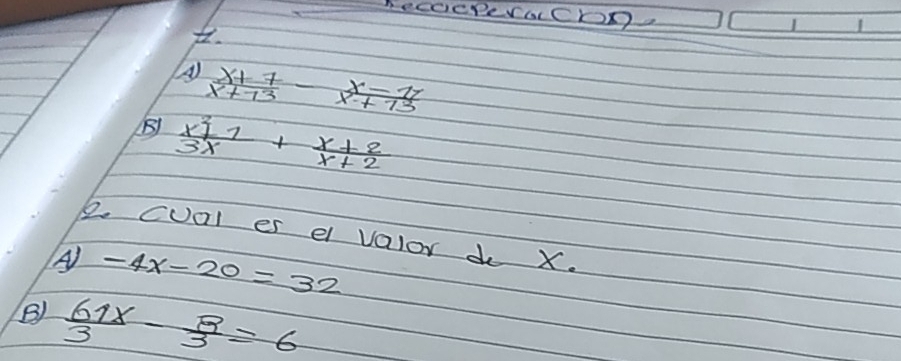 Recuperación
1.
A) x+7/x+13 - x-11/x+13
B) x²+1/3x + x+2/x+2
2. CUal es el Valor de X.
A) -4x-20=32
B) 61x/3 - 8/3 = 6